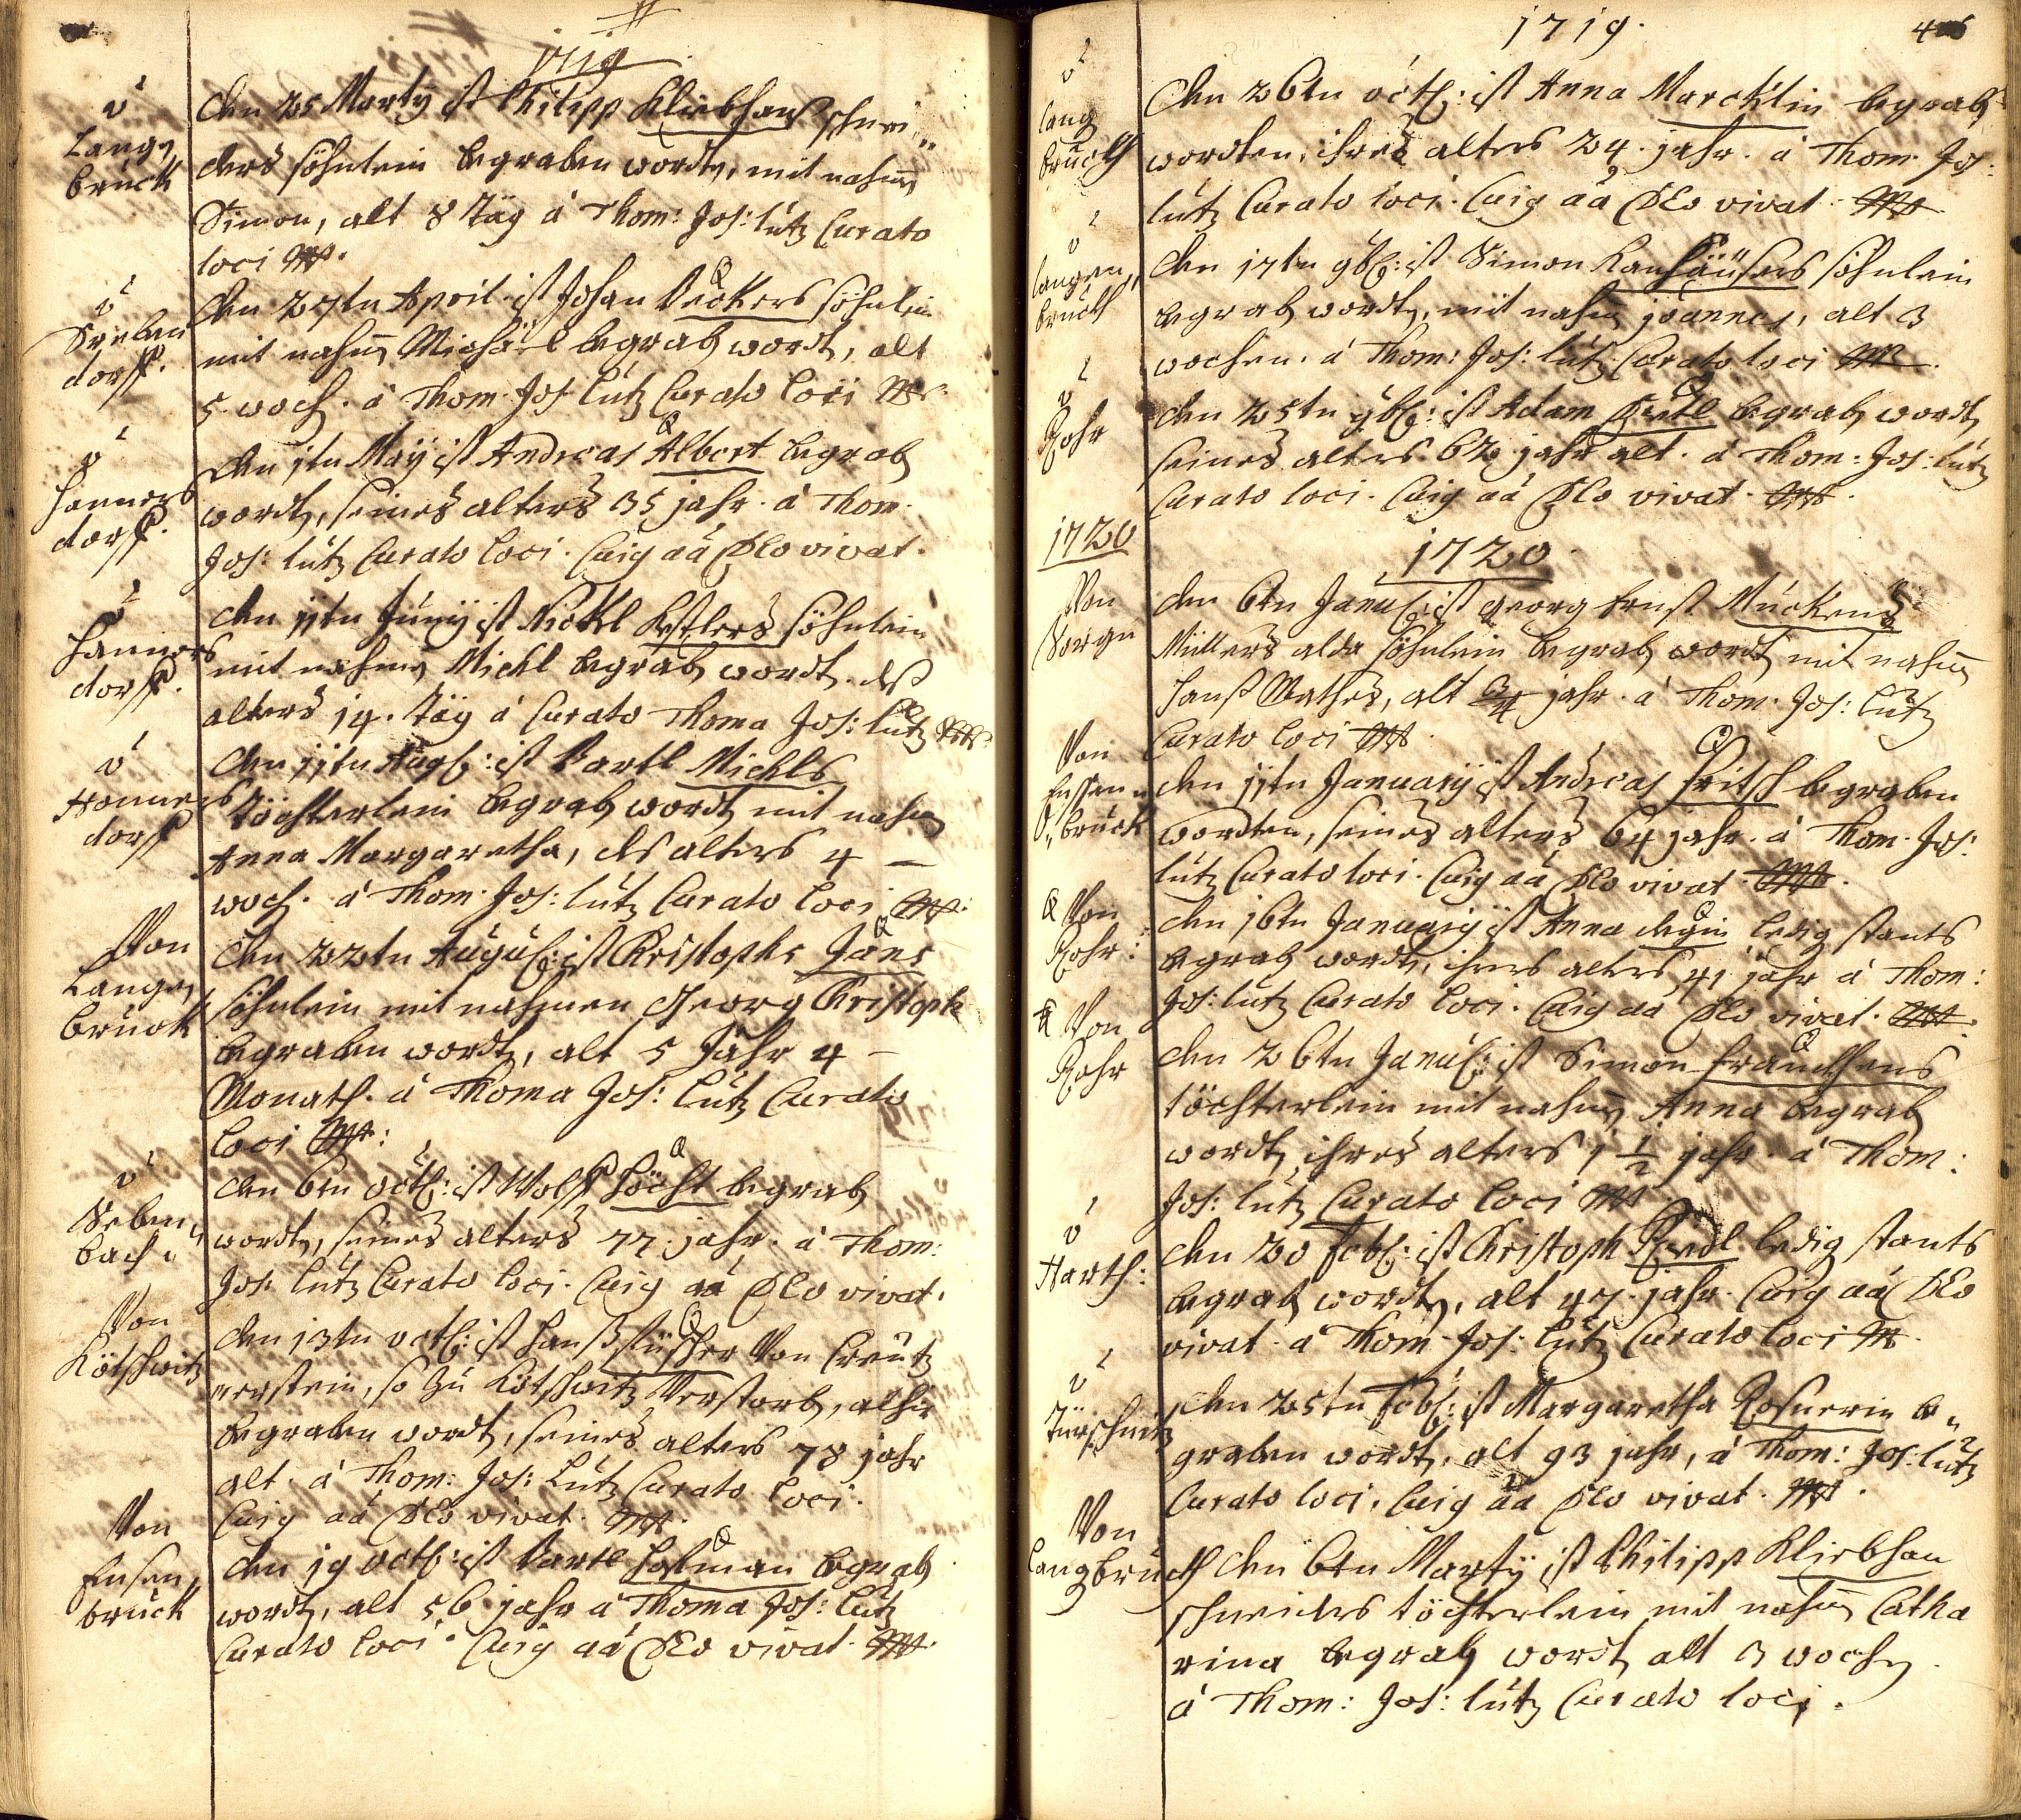 1719
v
Lang,
bruck
den 25 Marty ist Philipp Kliebhan schnei,,
ders söhnlein begraben wordt, mit nahm
Simon, alt 8 Täg à Thom: Jos: lutz Curato
loci
v
dorff.
den 27tn April ist Johan Veckers söhnlein
mit nahm Michäel begrab wordt, alt
5 woch. à Thom. Jos: lutz Curato loci
v
Hanners
dorff.
den 1tn May ist Andreas Albert begrab
wordt, seines alters 35 jahr. à Thom.
Jos: lutz Curato loci. Cuig aá DEo vivat.
v
Hanners
dorff.
den 11tn Juny ist Nickl Kestlers söhnlein
mit nahme Michl begrab wordt. deß
alters 14. täg à Curato Thoma Jos: lutz
v
Hanners
dorff
den 11tn Aug: ist Bartl Michls
töchterlein begrab wordt mit nahm
Anna Margaretha, des alters 4 —
woch. à Thom. Jos: lutz Curato loci
Von
Lang,
bruck
den 22tn August ist Christophs Jäns
söhnlein mit nahmen Georg Christoph
begraben wordt, alt 5 Jahr 4 —
Monath. à Thoma Jos: lutz Curato
loci
v
Seben,,
bach.
den 6tn octb: ist Wolff Höcht begrab
wordt, seines alters 77. jahr. à Thom:
Jos: lutz Curato loci. Cuig aá DEo vivat.
Von
Kötschwitz
den 13tn octb: ist Hanß füscher Von Creutz
erstein, so zu Kötschwitz Verstorb, alhir
begraben wordt, seines alters 78 jahr
alt. à Thom: Jos: Lutz Curato loci.
Cuig aá DEo vivat.
Von
Ensen,,
bruck
den 19 octb: ist Bartl Hofman begrab
wordt, alt 56 jahr à Thoma Jos: lutz
Curato loci. Cuig aá DEo vivat.
1719.
v
lang
bruckh
den 26tn octb: ist Anna Marcklin begrab
wordten, ihres alters 24. jahr. à Thom. Jos:
lutz Curato loci. Cuig aá DEo vivat.
v
langen,,
bruckh
den 17tn 9b: ist Simon Kanhäusers söhnlein
begrab wordt, mit nahm joannes, alt 3
wochen. à Thom: Jos: lutz Curato loci
v
Rohr
den 25tn 9b: ist Adam begrab wordt
seines alters 62 jahr alt. à Thom: Jos: lutz
Curato loci. Cuig aá DEo vivat.
1720
1720
Von
Sorgn
den 6tn Janu: ist georg Ernst Mückens
Müllers alda söhnlein begrab wordt mit nahm
Hanß Mathes, alt 3/4 jahr. à Thom. Jos: lutz
Curato loci
Von
Enssen,,
bruck
den 11tn January ist Andreas Fritsch begraben
wordten, seines alters 64 jahr. à Thom. Jos:
lutz Curato loci. Cuig aá DEo vivat.
Von
Rohr:
den 16tn January ist Anna degin ledig stants
begrab wordt, ihres alters 41 jahr à Thom:
Jos: lutz Curato loci. Cuig aa DEo vivat.
Von
Rohr
den 26tn Janu: ist Simon
töchterlein mit nahm Anna begrab
wordt, ihres alters 1 1/2 jahr. à Thom:
Jos: lutz Curato loci
v
Harth:
den 20 Febb: ist Christoph Riedl ledig stants
begrab wordt, alt 47. jahr. Cuig aá DEo
vivat. à Thom. Jos: lutz Curato loci
v
Türschnitz
den 25tn Febb: ist Margaretha Rosnerin be,,
graben wordt, alt 93 jahr, à Thom: Jos: lutz
Curato loci. Cuig aa DEo vivat.
Von
langbruckh
den 6tn Marty ist Philipp Kliebhan
schneiders töchterlein mit nahm Catha
rina begrab wordt alt 3 woch
à Thom: Jos: lutz Curato loci.